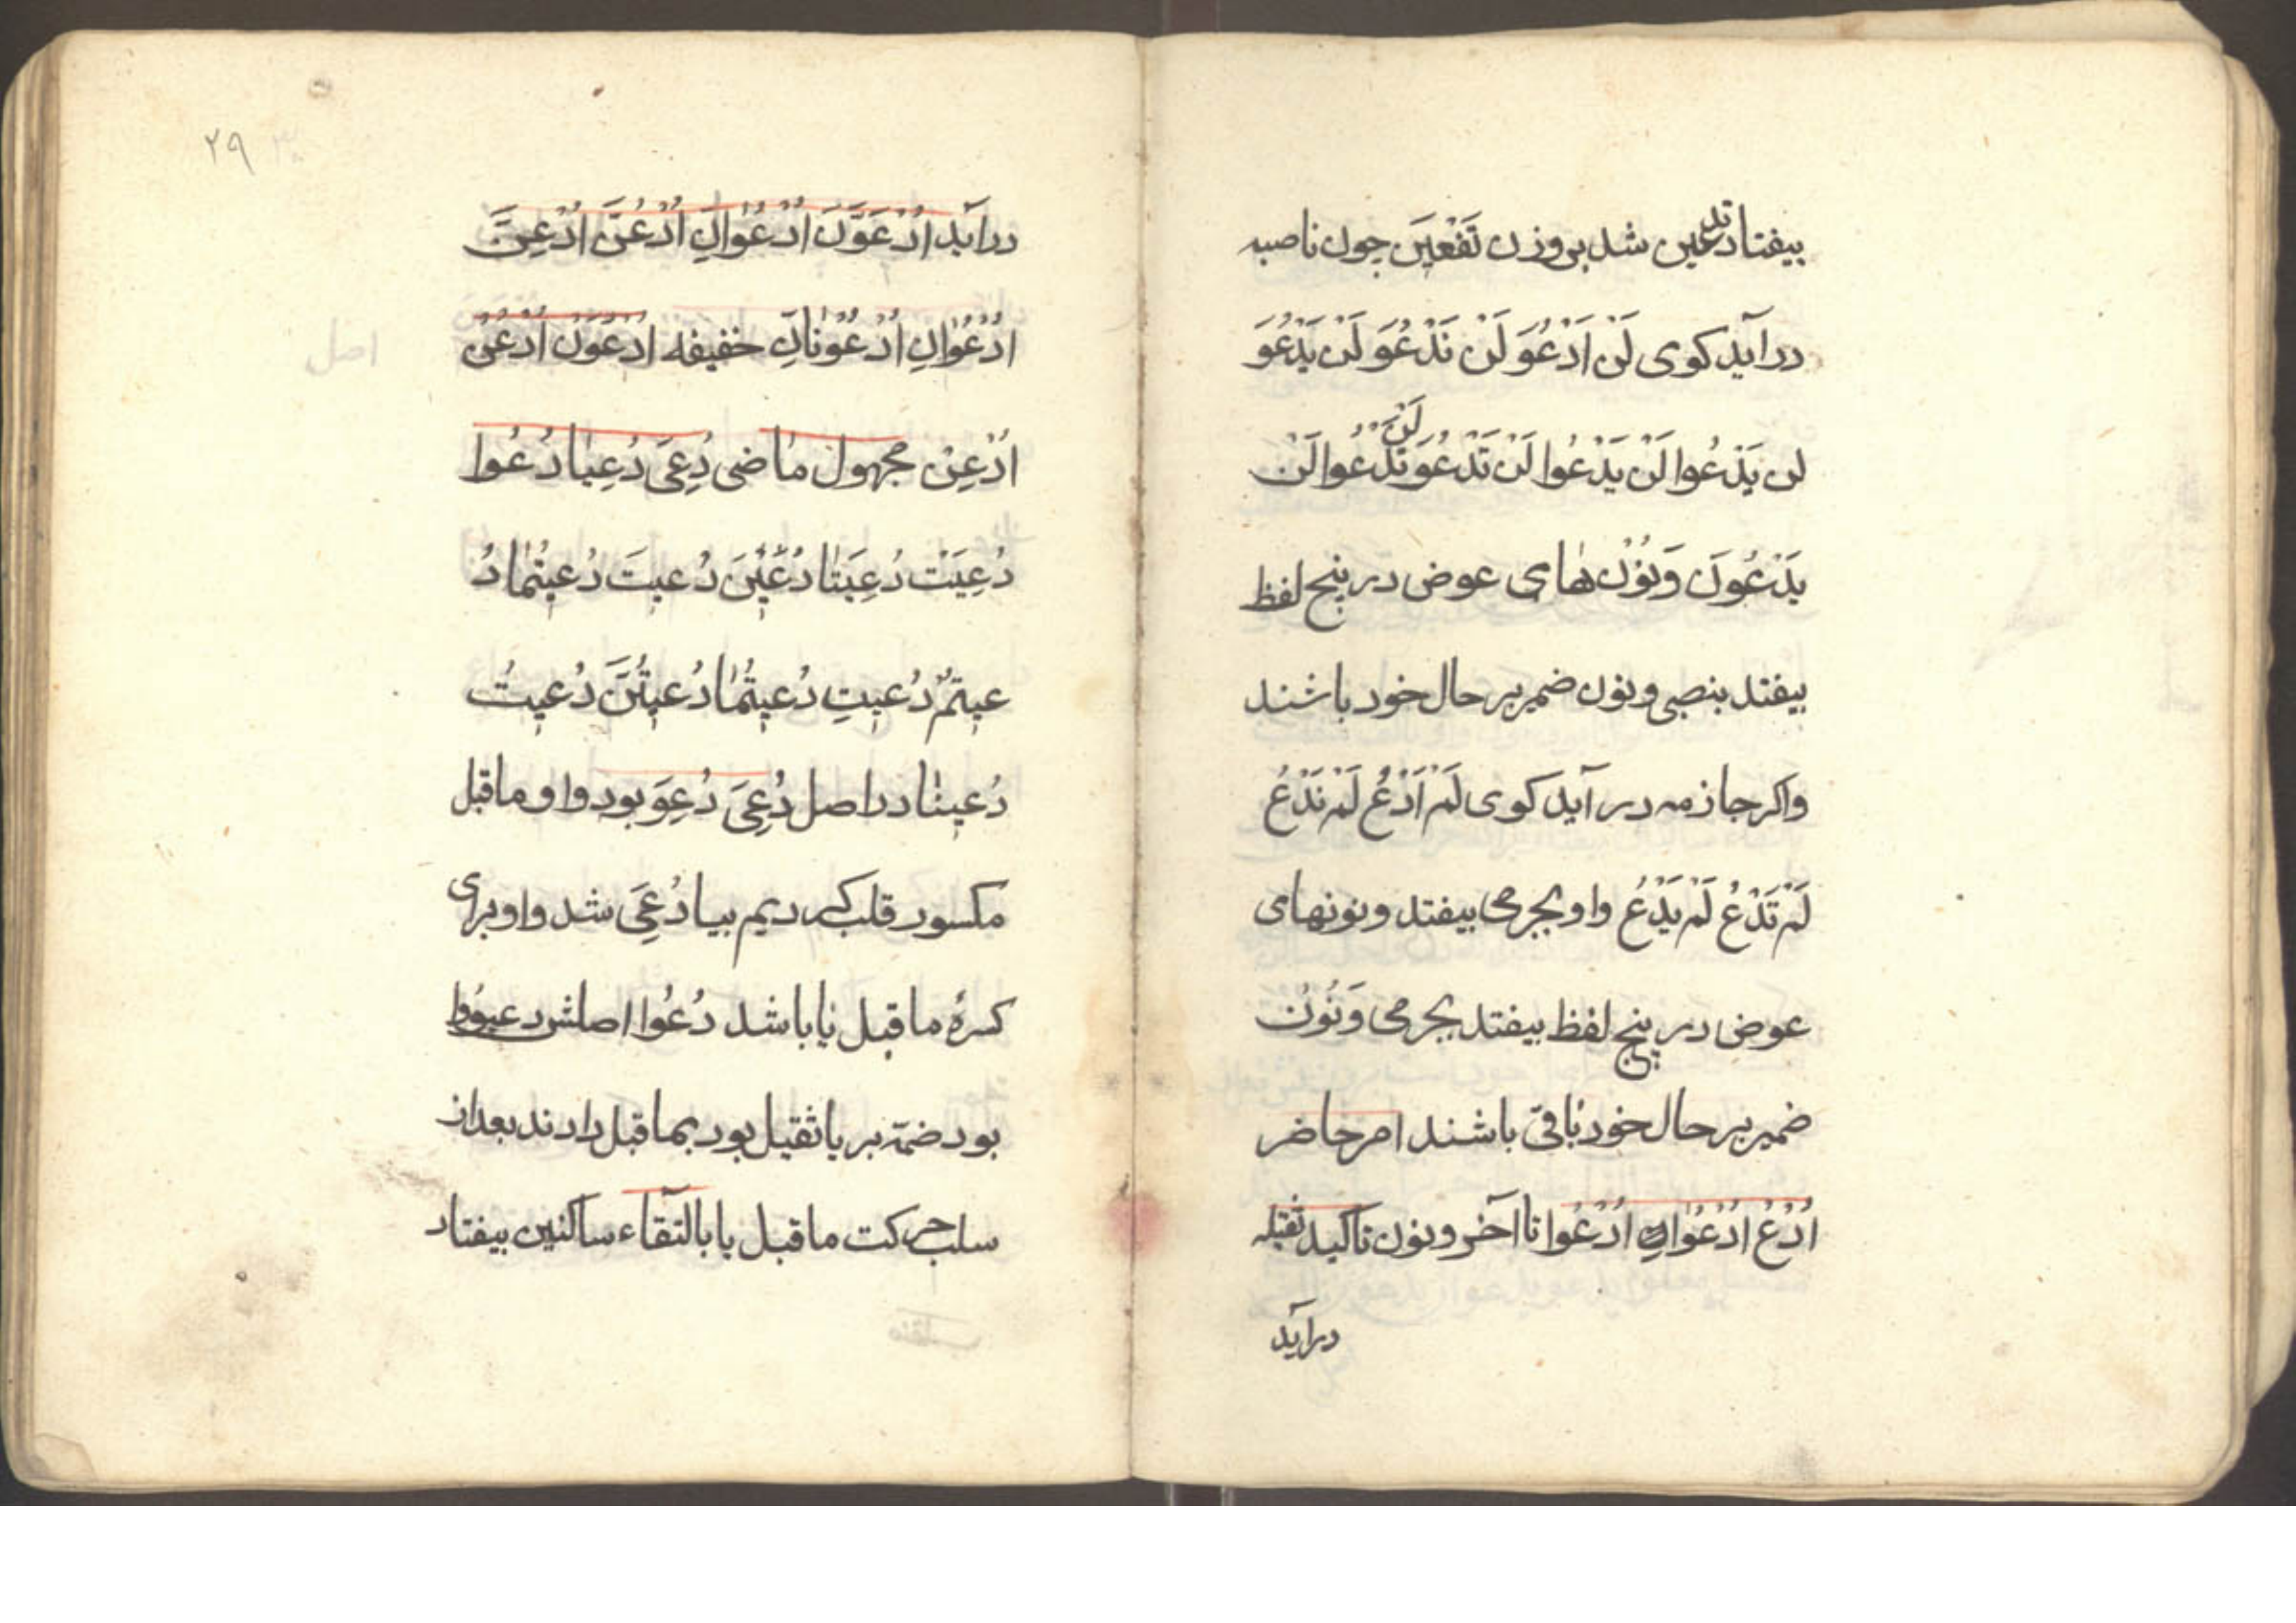 بیفتاد تدعین شد بر وزن تَفْعِیَن چون ناصبه
در آید کوی لَنْ اَدْعُوَ لَنْ نَدْعُوَ لَن یَدْعُوَ
لن یَدْعُوا لَنْ یَدْعُوا لَن تَدْعُوَ لَنْ تَدْعُوا لَنْ
یَدْعُونَ وَنُوْن هٰای عوض در پنج لفظ
بیفتد بنصبی و نون ضمیر بر حال خود باشند
واکر جازمه در آید کوی لَمْ اَدْعُ لَمْ نَدْعُ
لَمْ تَدْعُ لَمْ یَدْعُ واو بجزمی بیفتد و نونهای
عوضِ در پنج لفظ بیفتد بجزمی وَنُوْن
ضمیر بر حال خود بٰاقی باشند امر حاضر
اُدْعُ اُدْعُوٰا اُدْعُوا تا آخر و نون تاکید ثقیله
در آید
۲۹
در آید اُدْعُوَنَّ اُدْعُوٰانِّ اُدْعُنَّ اُدْعِنَّ
اُدْعُوٰانِّ اُدْعُوْنٰانِّ خفیفه اُدْعُوَنْ اُدْعُنْ
اصل
اُدْعِنْ مجهول مٰاضی دُعِیَ دُعِیٰا دُعُوا
دُعِیَتْ دُعِیَتٰا دُعِیْنَ دُعیتَ دُعیتُمٰا دُ
عیتمْ دُعیتِ دُعیتُمٰا دُعیتُنَّ دُعیتُ
دُعینٰا در اصل دُعِیَ دُعِوَ بود واو ماقبل
مکسور قلب کردیم بیا دُعِیَ شد واو برای
کسرهٔ ماقبل یٰا باشد دُعُوا اصلش دعیوُا
بود ضمّه بر یا ثقیل بود بماقبل دادند بعد از
سلب حرکت ماقبل یا بالتقاء ساکنین بیفتاد